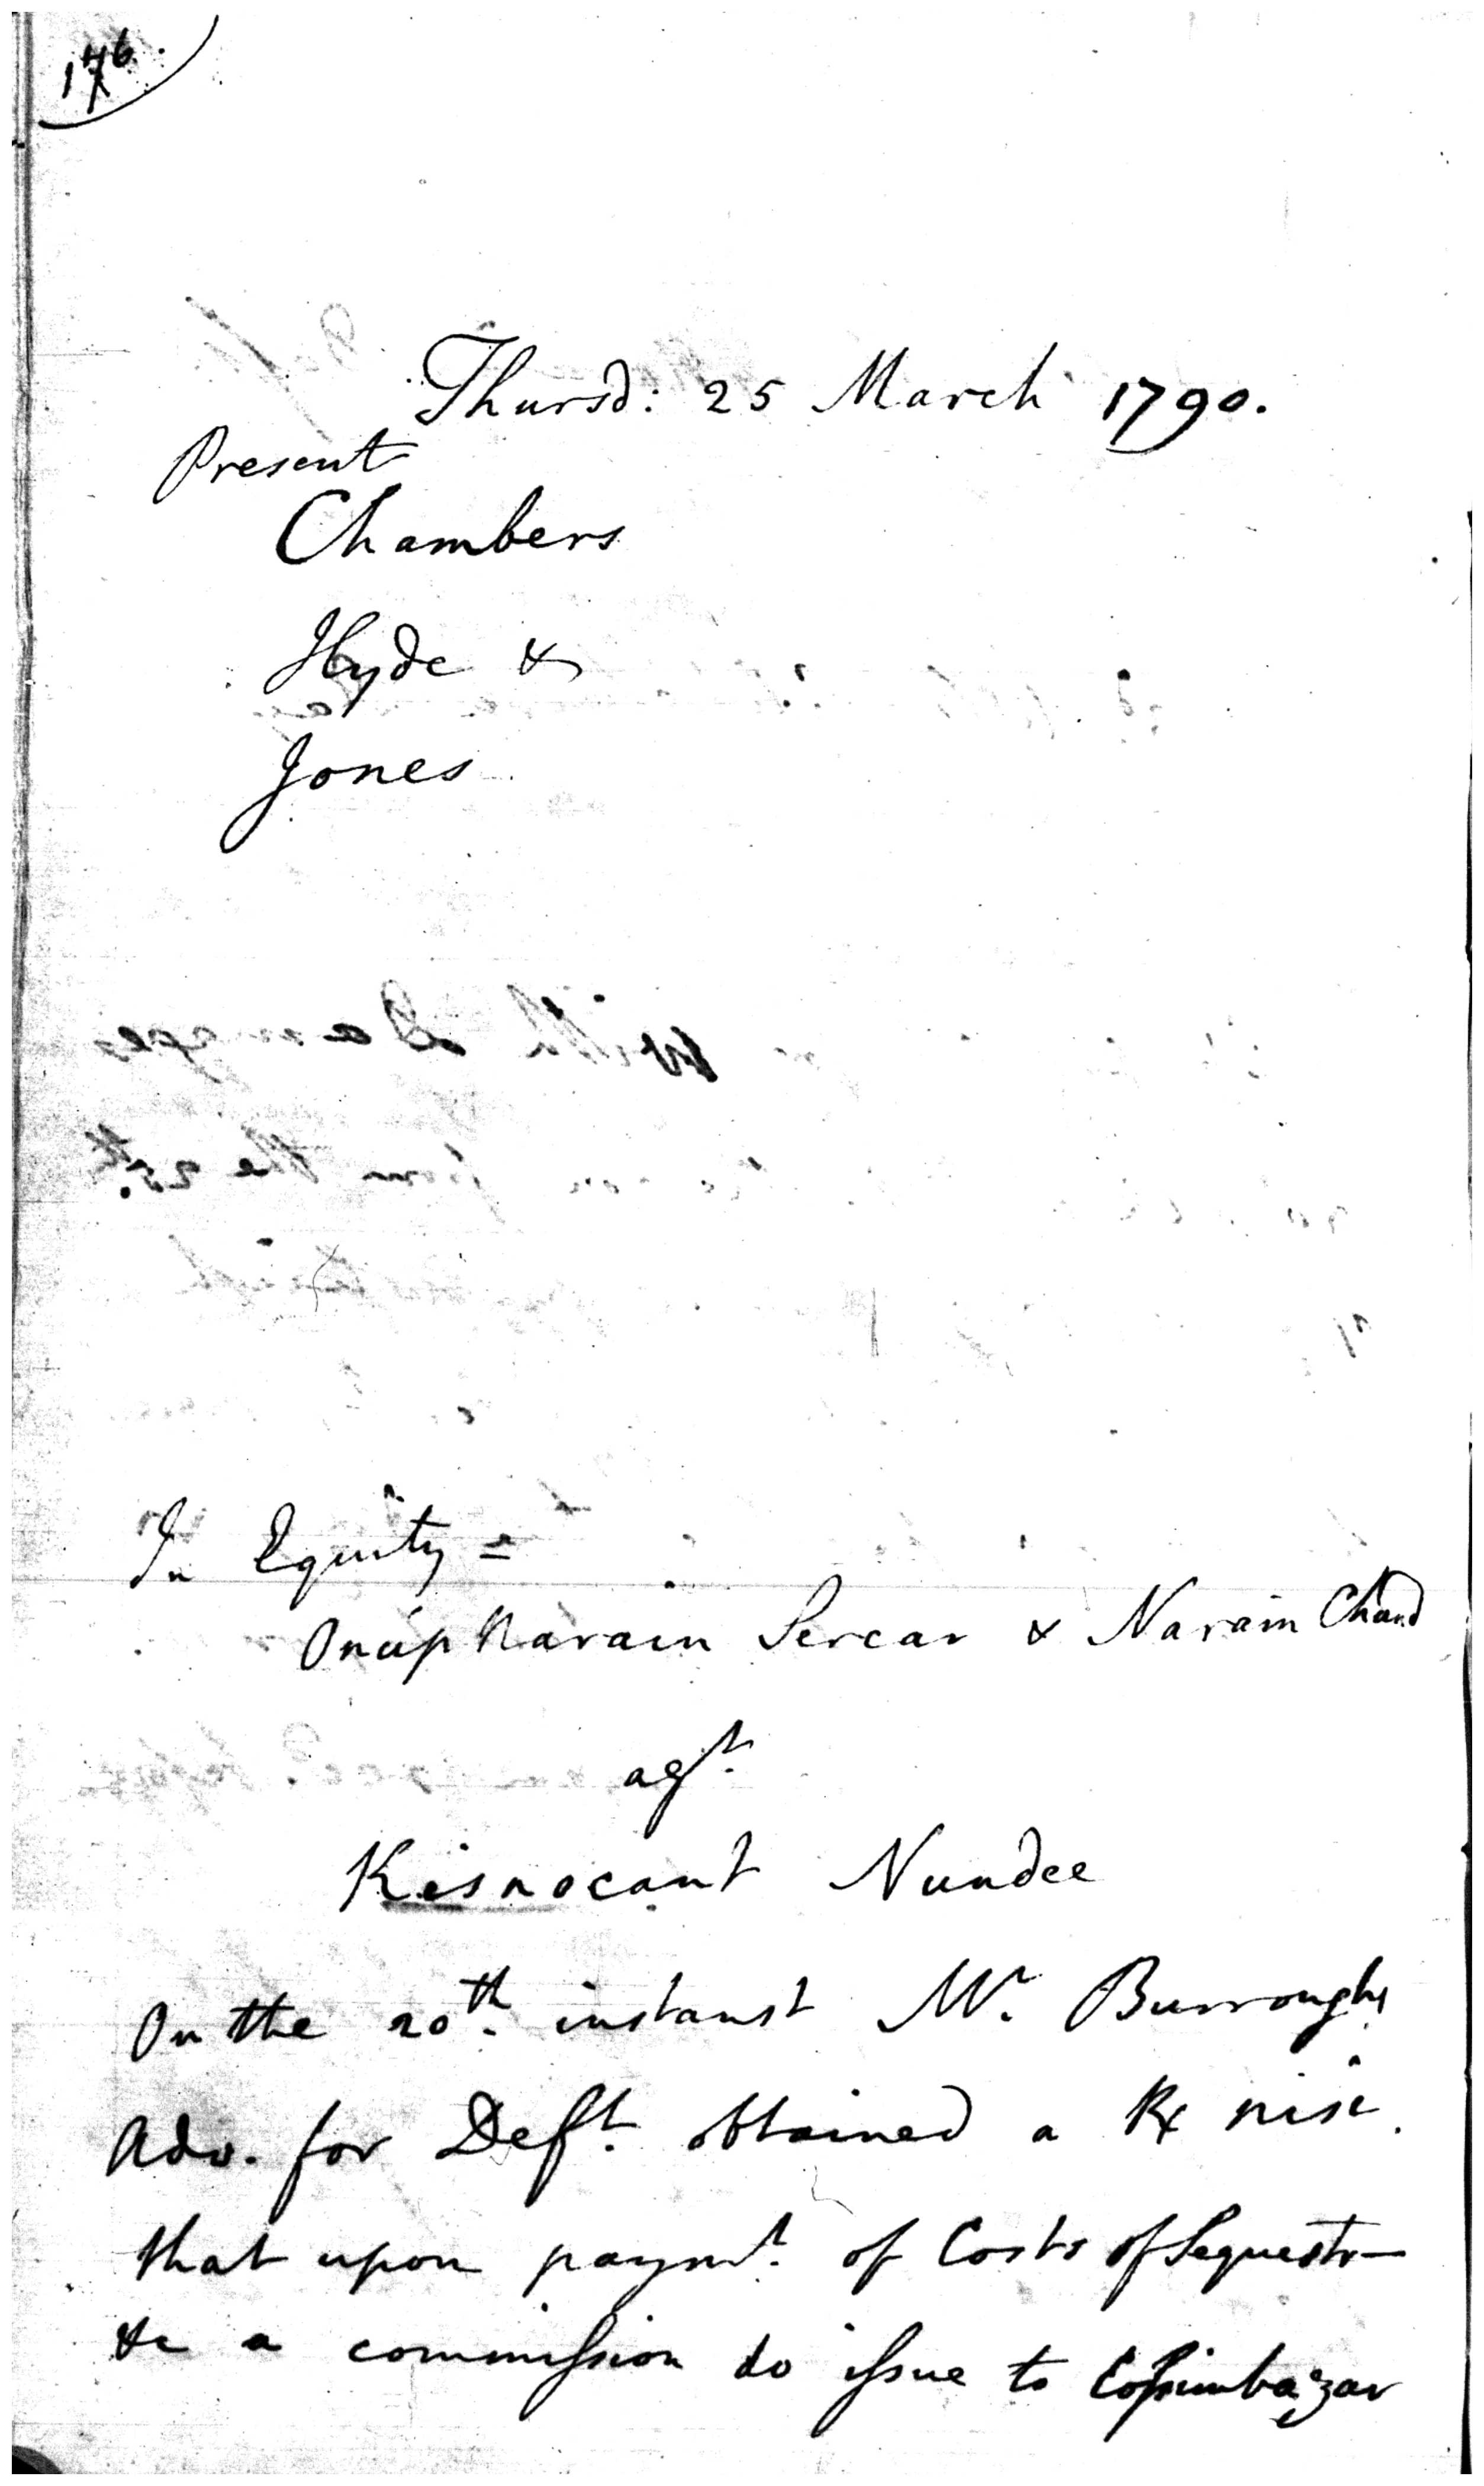 176.
Thursd: 25 March 1790.
Present
Chambers
Hyde &
Jones
In Equity =
Onúp Narain Sercar & Narain Chand
agt.
Kisnocant Nundee
On the 20th. instant Mr. Burroughs
Adv. for Deft. obtained a Rx nisi
that upon paymt. of Costs of Sequestr—
&c a commission do issue to Cossimbazar